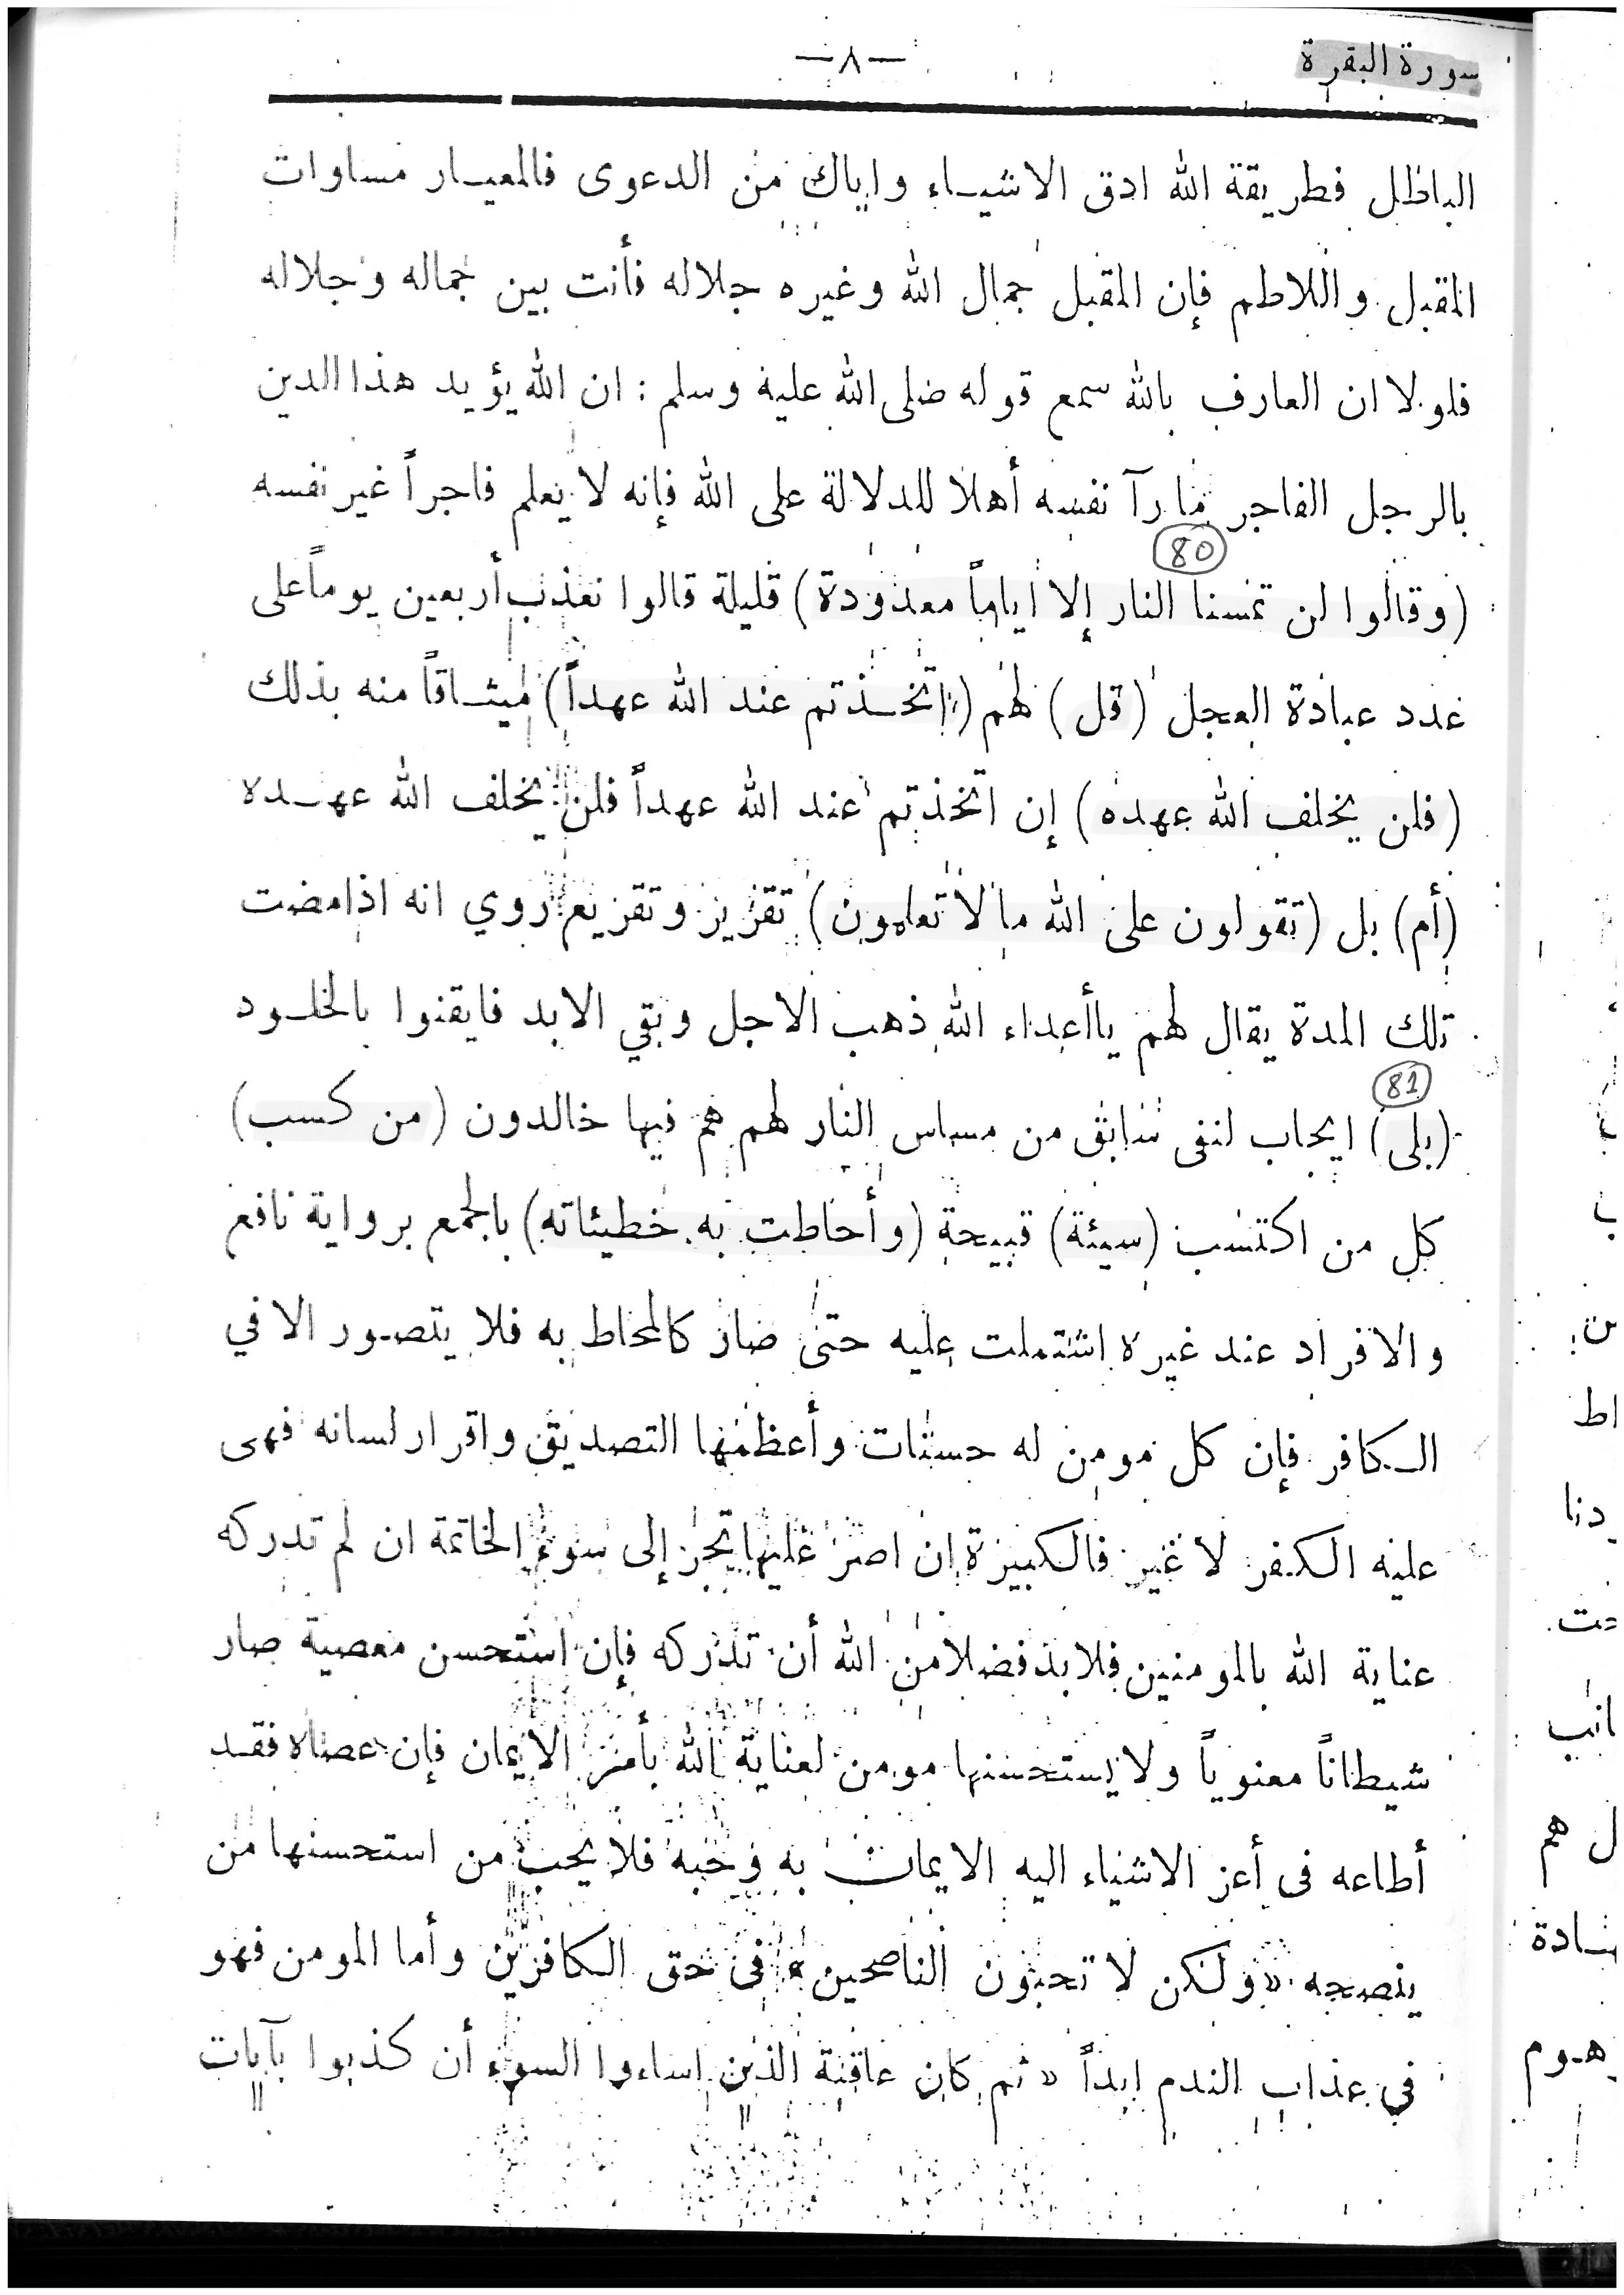 سورة البقرة
—٨—
الباطل فطريقة الله ادق الاشياء واياك من الدعوى فالمعيار مساوات
المقبل واللاطم فإن المقبل جمال الله وغيره جلاله فأنت بين جماله وجلاله
فلولا ان العارف بالله سمع قوله صلى الله عليه وسلم : ان الله يؤيد هذا الدين
بالرجل الفاجر ما رآ نفسه أهلا للدلالة على الله فإنه لا يعلم فاجراً غير نفسه
80
(وقالوا لن تمسنا النار إلا اياماً معدودة) قليلة قالوا نعذب أربعين يوماً على
عدد عبادة العجل (قل) لهم (اتخذتم عند الله عهداً) ميثاقاً منه بذلك
(فلن يخلف الله عهده) إن اتخذتم عند الله عهداً فلن يخلف الله عهده
(أم) بل (تقولون على الله ما لا تعلمون) تقرير وتقريع روي انه اذا مضت
تلك المدة يقال لهم ياأعداء الله ذهب الاجل وبقي الابد فايقنوا بالخلود
81
(بلى) ايجاب لنفى سابق من مساس النار لهم هم فيها خالدون (من كسب)
كل من اكتسب (سيئة) قبيحة (وأحاطت به خطيئاته) بالجمع برواية نافع
والافراد عند غيره اشتملت عليه حتى صار كالمحاط به فلا يتصور الا في
الكافر فإن كل مومن له حسنات وأعظمها التصديق واقرار لسانه فهى
عليه الكفر لا غير فالكبيرة ان اصر عليها تجر إلى سوء الخاتمة ان لم تدركه
عناية الله بالمومنين فلابد فضلا من الله أن تدركه فإن استحسن معصية صار
شيطاناً معنوياً ولا يستحسنها مومن لعناية الله بأمر الايمان فإن عصاه فقد
أطاعه فى أعز الاشياء اليه الايمان به وحبه فلا يحب من استحسنها من
ينصحه «ولكن لا تحبون الناصحين» فى حق الكافرين وأما المومن فهو
في عذاب الندم ابداً « ثم كان عاقبة الذين اساءوا السوء أن كذبوا بآيات